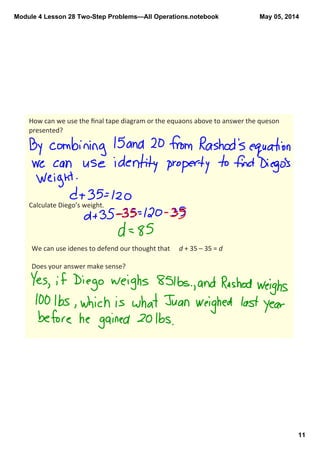 Module 4 Lesson 28 Two‐Step Problems—All Operations.notebook
May 05, 2014
How can we use the final tape diagram or the equaons above to answer the queson
presented?
By combining 15 and 20 from Rashod's equation
we can use identity property to find Diego's
weight.
d+35=120
Calculate Diego's weight.
d+35-35=120-35
d=85
We can use idenes to defend our thought that d + 35 – 35 = d
Does your answer make sense?
Yes, if Diego weighs 85lbs., and Rashod weighs
100 lbs, which is what Juan weighed last year
before he gained 20 lbs.
11